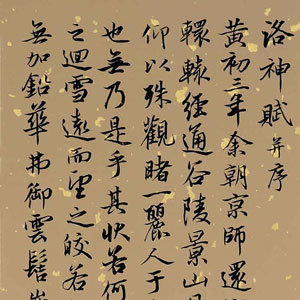 洛神賦并序
黄初三年余朝京師還
轘轅經通谷陵景山
仰以殊觀睹一麗人于
也無乃是乎其狀若何
之迴雪遠而望之皎若
無加鉛華弗御雲髻